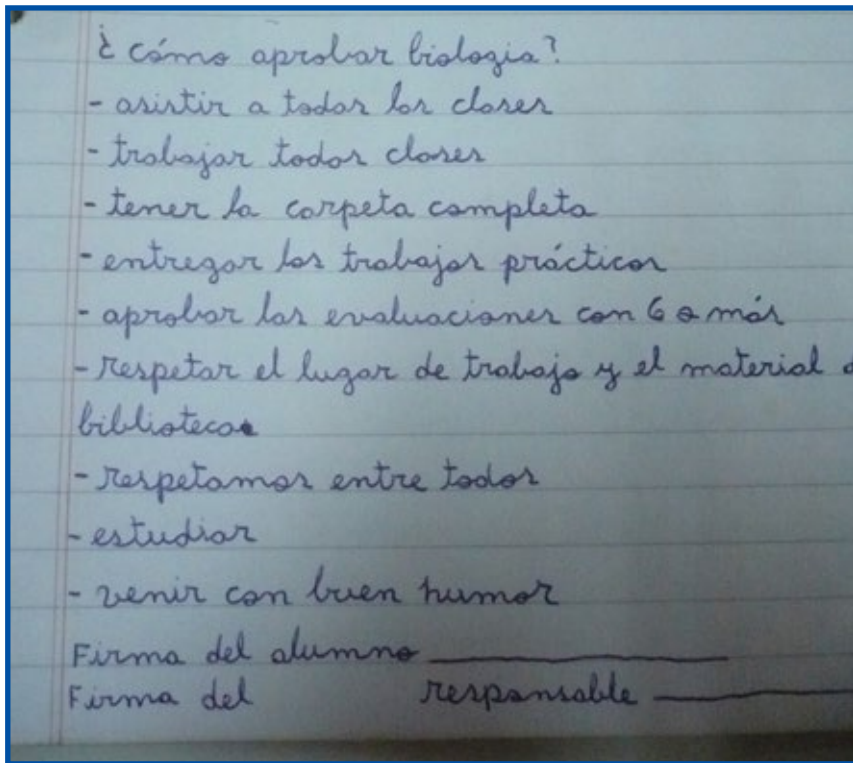 ¿cómo aprobar biologia?
- asistir a todas las clases
- trabajar todas clases
- tener la carpeta completa
- entregar los trabajos prácticos
- aprobar las evaluaciones con 6 o más
- respetar el lugar de trabajo y el material
biblioteca
- respetamos entre todos
- estudiar
- venir con buen humor
Firma del alumno
Firma del responsable